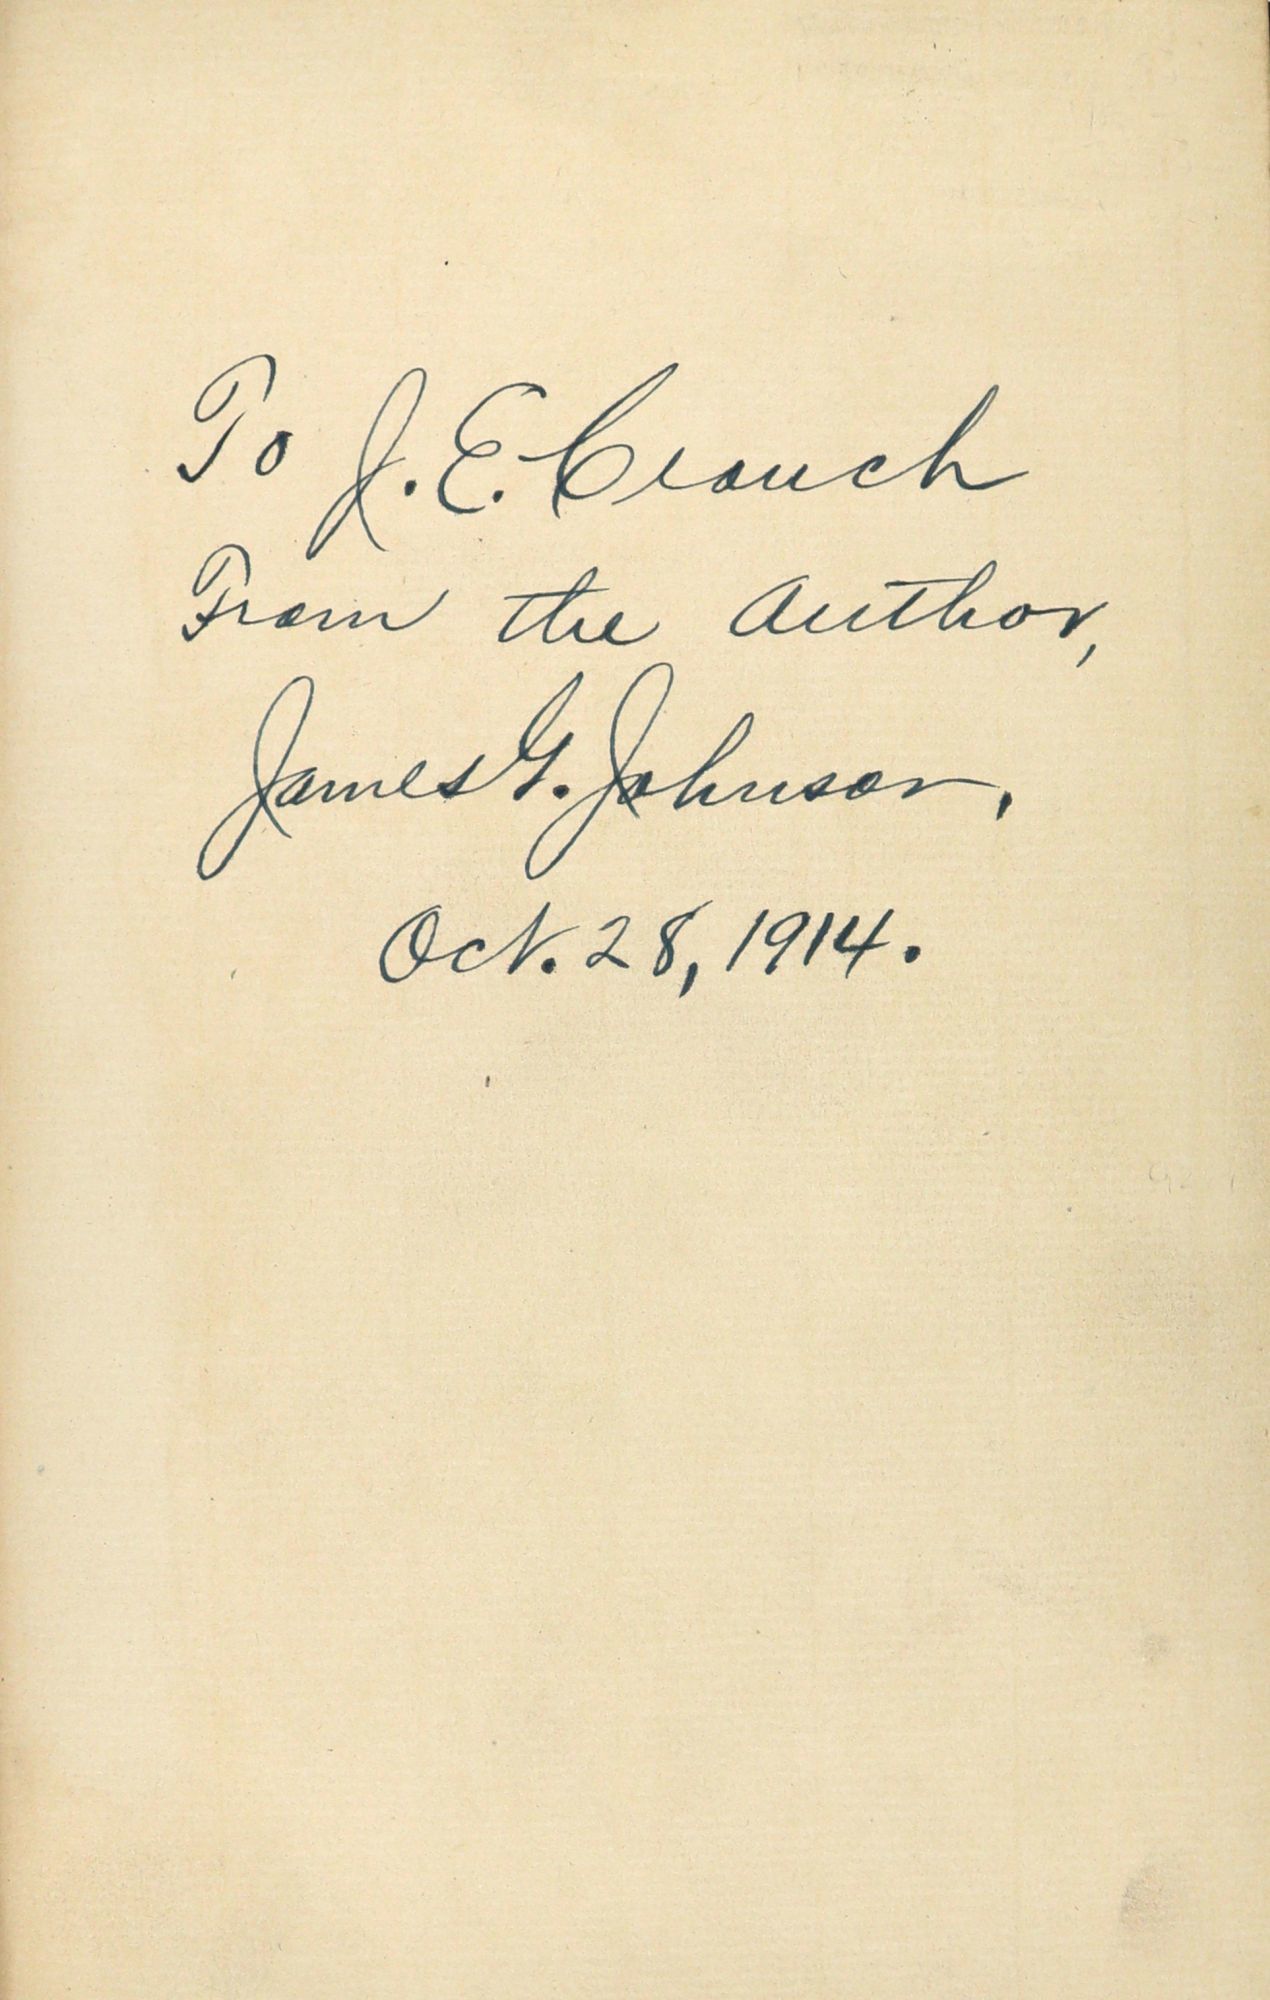 To J. E. Crouch
From the Author,
James G. Johnson,
Oct. 28, 1914.